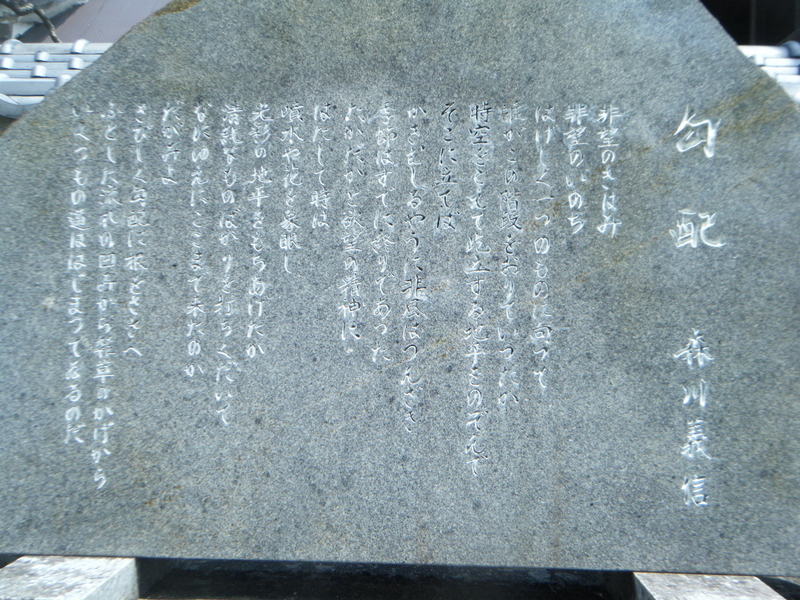 勾配 森川義信
非望のきはみ
非望のいのち
はげしく一つのものに向つて
誰がこの階段をおりていつたか
時空をこえて屹立する地平をのぞんで
そこに立てば
かきむしるやうに悲風はつんざき
季節はすでに終りであつた
たかだかと欲望の精神に
はたして時は
噴水や花を象眼し
光彩の地平をもちあげたか
清純なものばかりを打ちくだいて
なにゆえにここまで来たのか
だがみよ
きびしく勾配に根をささへ
ふとした流れの凹みから雑草のかげから
いくつもの道ははじまつてゐるのだ